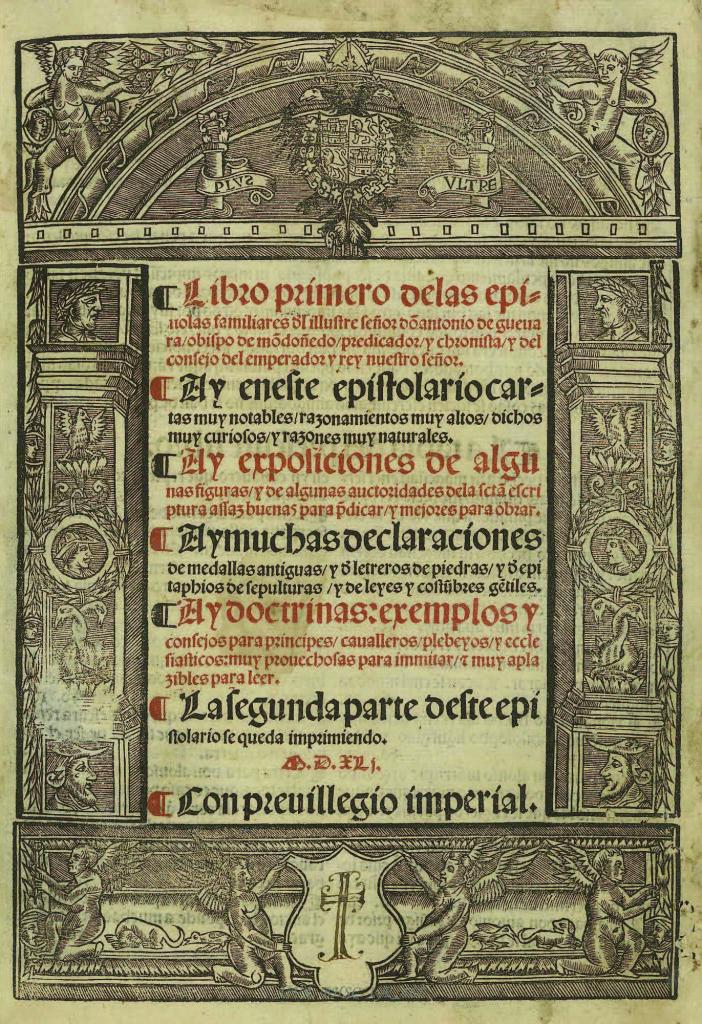 PLVS
VLTRE
¶ Libro primero delas epi-
stolas familiares dl illustre señor dõ antonio de gueua
ra/obispo de mõdoñedo/predicador/y chronista/y del
consejo del emperador y rey nuestro señor.
¶ Ay eneste epistolario car-
tas muy notables/razonamientos muy altos/dichos
muy curiosos/y razones muy naturales.
¶ Ay exposiciones de algu
nas figuras/y de algunas auctoridades dela sctã escri
ptura assaz buenas para p̃dicar/y mejores para obrar.
¶ Ay muchas declaraciones
de medallas antiguas/y d̃ letreros de piedras/y d̃ epi
taphios de sepulturas/y de leyes y costũbres gẽtiles.
¶ Ay doctrinas: exemplos y
consejos para principes/caualleros/plebeyos/y eccle
siasticos: muy prouechosas para immitar/⁊ muy apla
zibles para leer.
¶ La segunda parte deste epi
stolario se queda imprimiendo.
M.D.XLj.
¶ Con preuillegio imperial.